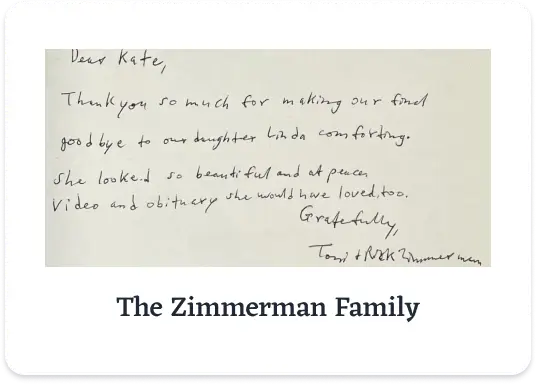 Dear Kate,
Thank you so much for making our final
goodbye to our daughter Linda comforting.
She looked so beautiful and at peace.
Video and obituary she would have loved, too.
Gratefully,
Toni + Rick Zimmerman
The Zimmerman Family